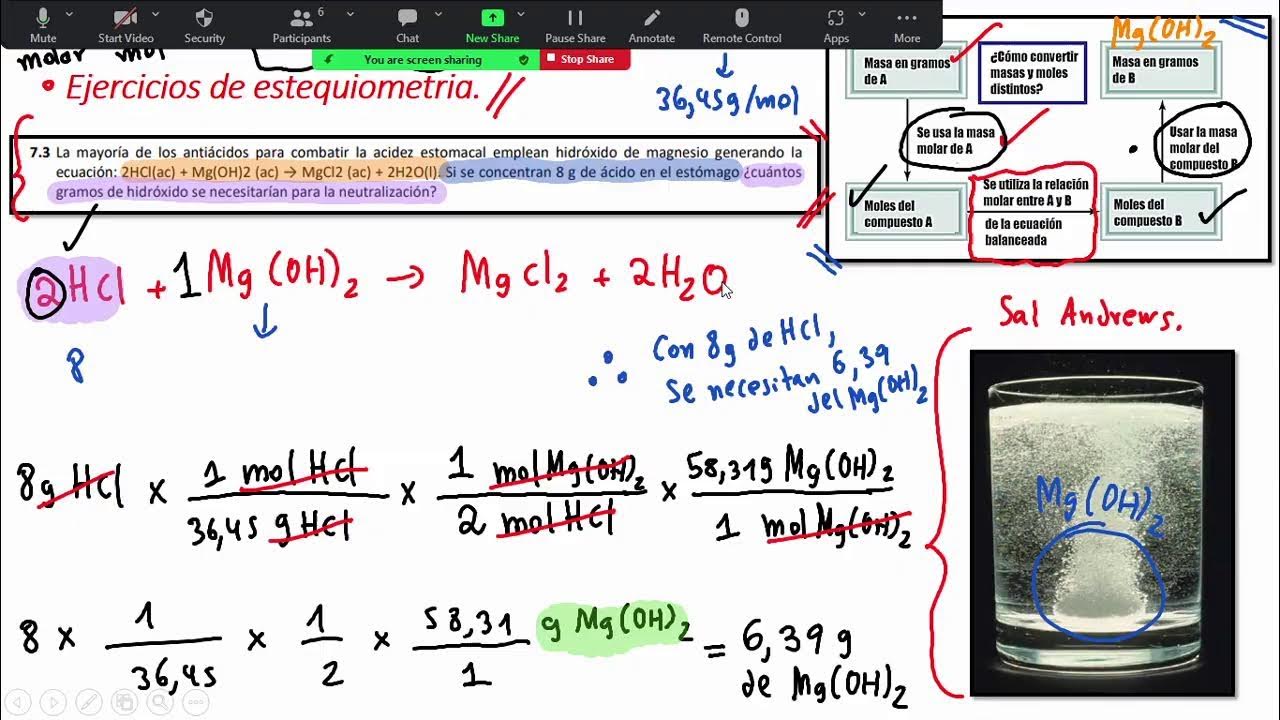 Mute
Start Video
Security
6
Participants
Chat
New Share
Pause Share
Annotate
Remote Control
Apps
More
You are screen sharing
Stop Share
molar mol
• Ejercicios de estequiometria.
36,45g/mol
7.3 La mayoría de los antiácidos para combatir la acidez estomacal emplean hidróxido de magnesio generando la
ecuación: 2HCl(ac) + Mg(OH)2 (ac) → MgCl2 (ac) + 2H2O(l). Si se concentran 8 g de ácido en el estómago ¿cuántos
gramos de hidróxido se necesitarían para la neutralización?
Mg(OH)₂
Masa en gramos
de A
¿Cómo convertir
masas y moles
distintos?
Masa en gramos
de B
Se usa la masa
molar de A
Usar la masa
molar del
compuesto B
Moles del
compuesto A
Se utiliza la relación
molar entre A y B
de la ecuación
balanceada
Moles del
compuesto B
2HCl + 1 Mg(OH)₂ → MgCl₂ + 2H₂O
8
∴ Con 8g de HCl,
Se necesitan 6,39
del Mg(OH)₂
Sal Andrews.
Mg(OH)₂
8g HCl × 1 mol HCl / 36,45 g HCl × 1 mol Mg(OH)₂ / 2 mol HCl × 58,31g Mg(OH)₂ / 1 mol Mg(OH)₂
8 × 1 / 36,45 × 1 / 2 × 58,31 / 1 g Mg(OH)₂ = 6,39 g
de Mg(OH)₂